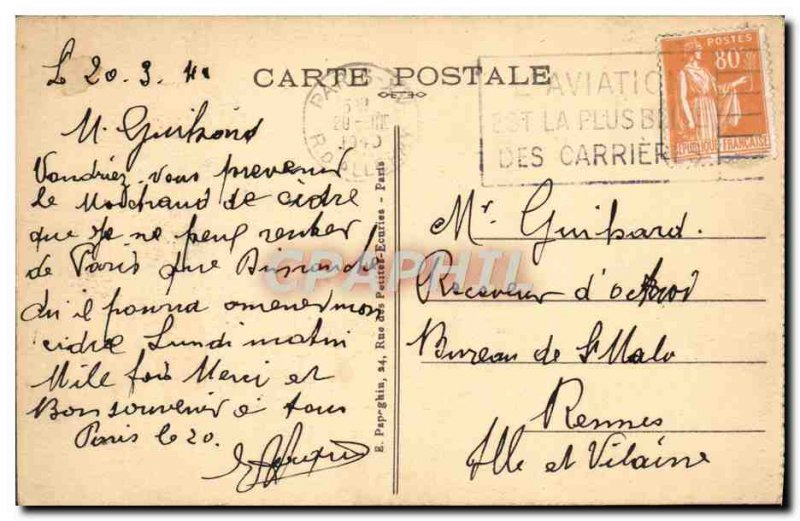 Le 20.3.40
CARTE POSTALE
M. Guibard
Voudriez-vous prevenir
le Marchand de cidre
que je ne peux rentrer
de Paris que Dimanche
qu'il pourra amener mon
cidre Lundi matin
Mile fois Merci et
Bon souvenir à tous
Paris le 20.
E. Papeghin, 24, Rue des Petites-Ecuries - Paris
PARIS
20 - III
1940
L'AVIATIO
EST LA PLUS B
DES CARRIÈR
POSTES
80c
REPUBLIQUE FRANÇAISE
Mr Guibard.
Receveur d'octroi
Bureau de St Malo
Rennes
Ille et Vilaine
CPAPHIL